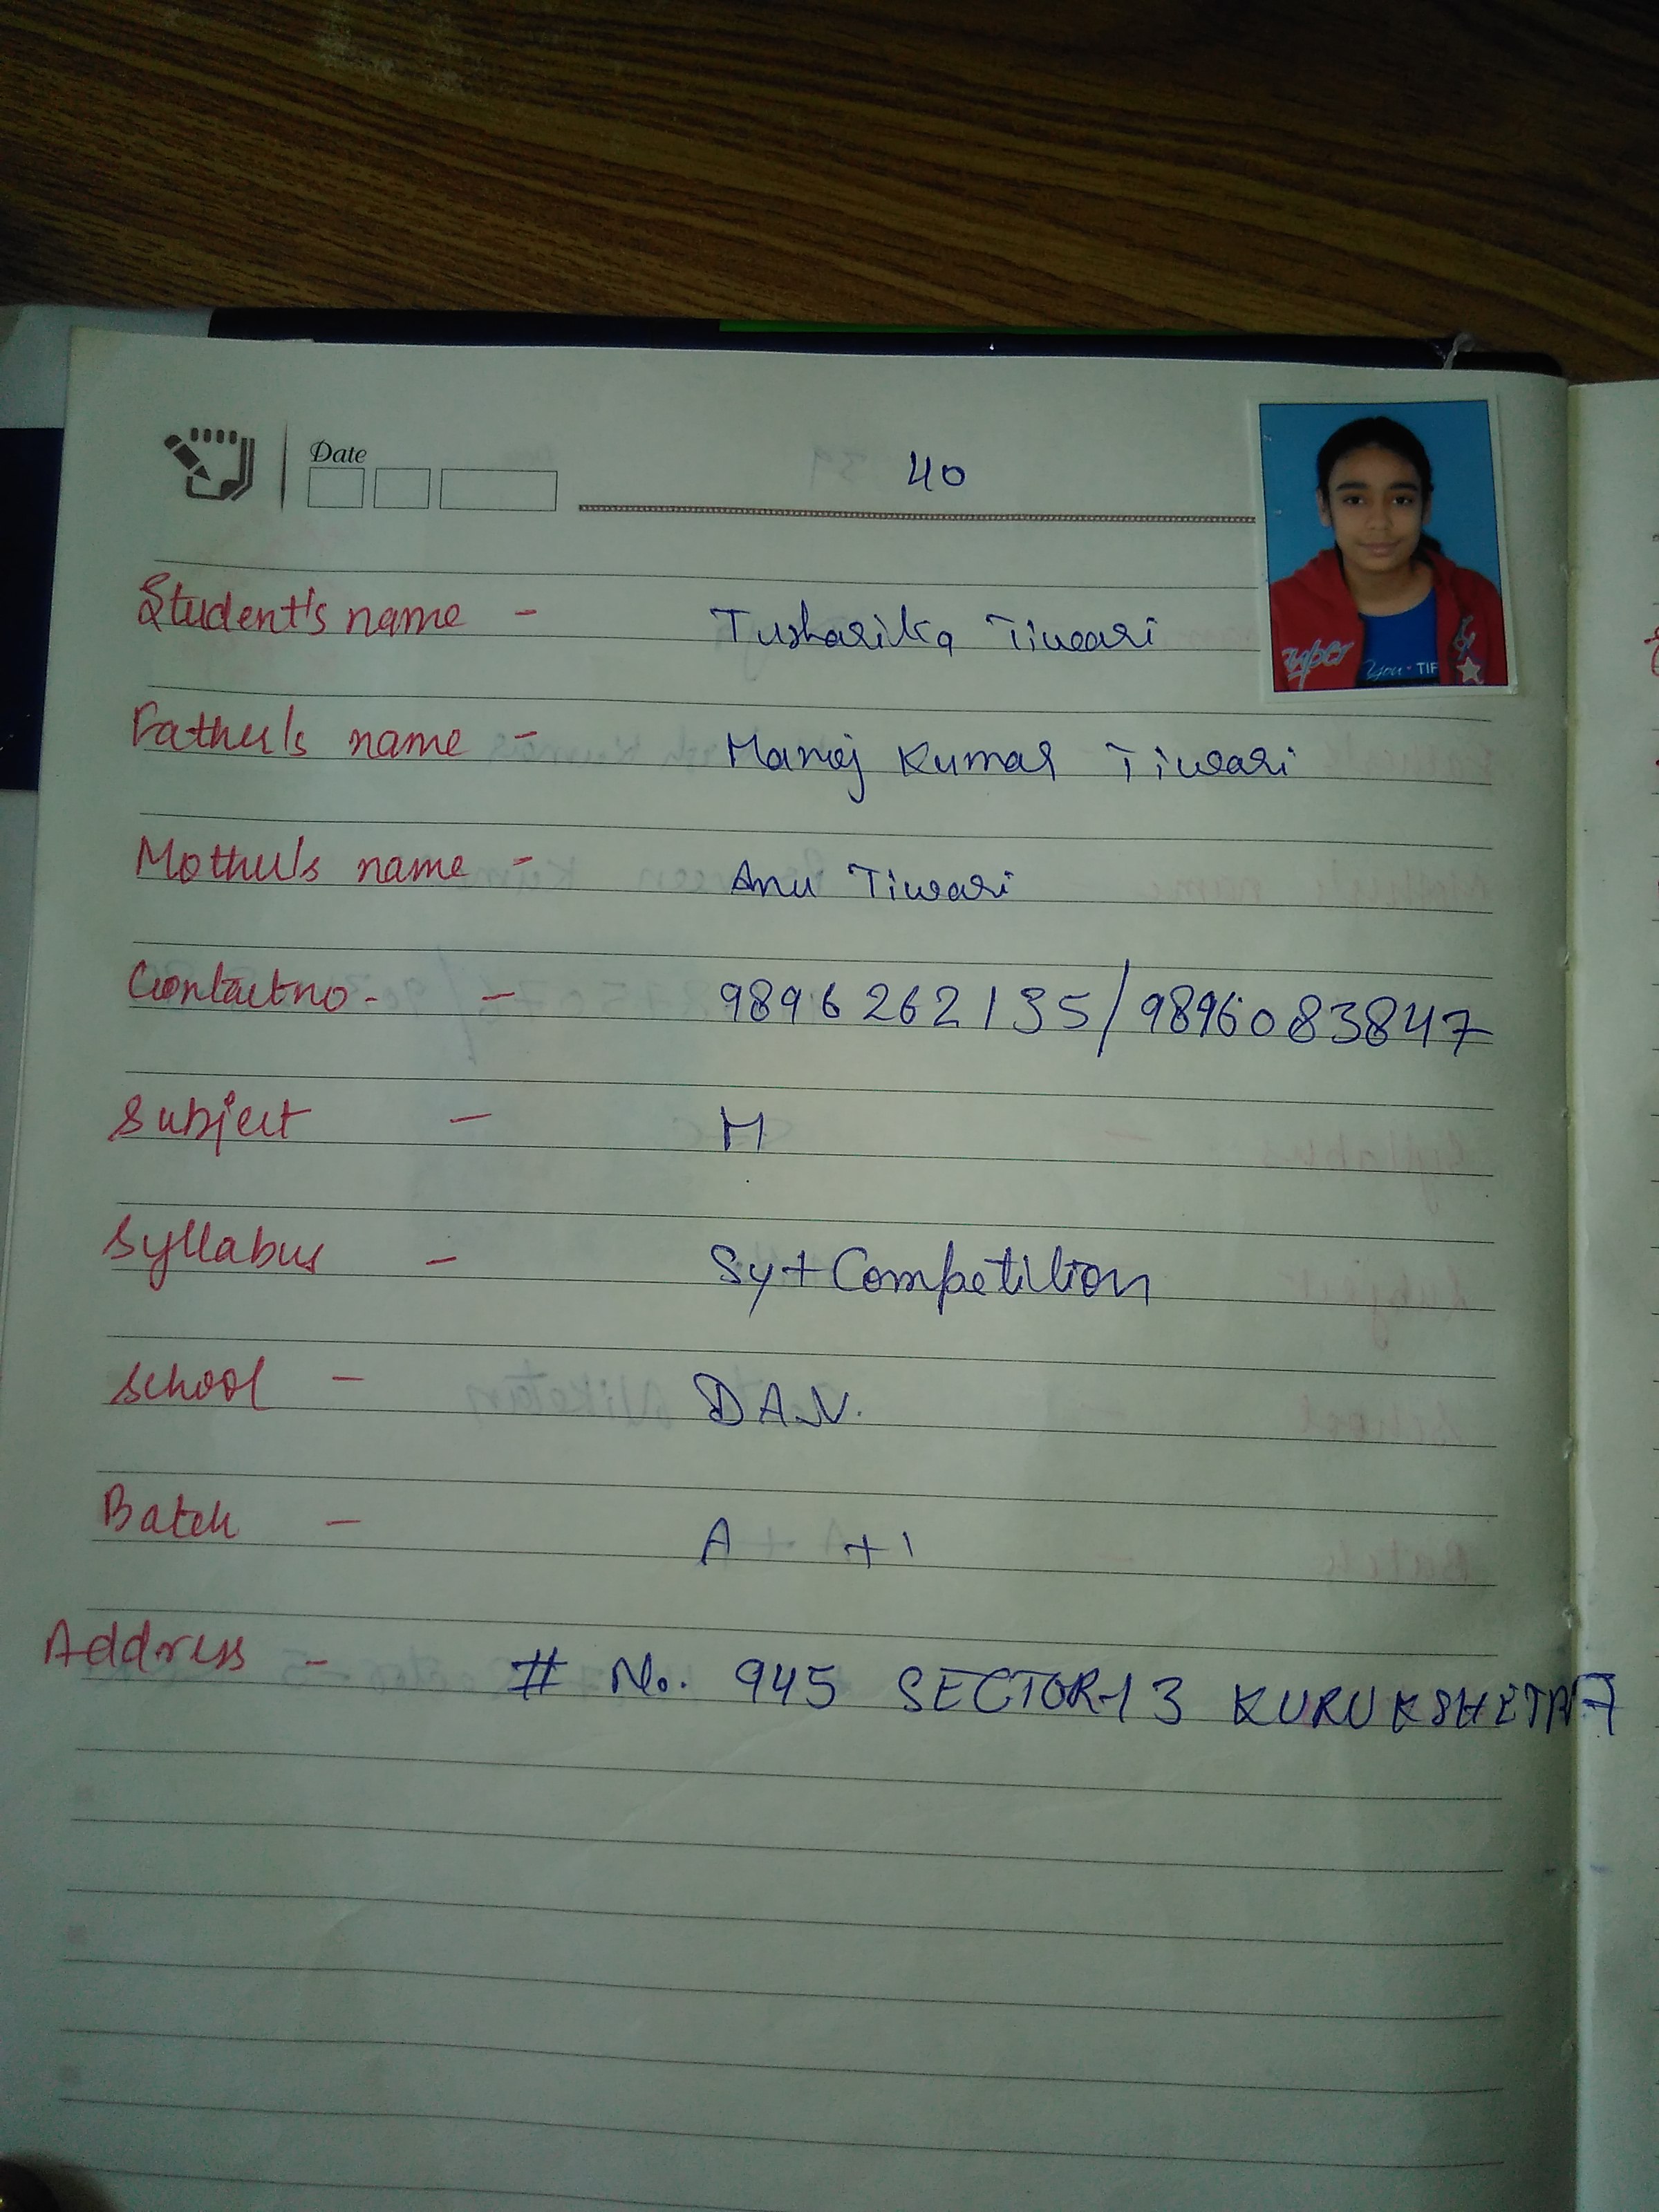 Date
40
Student's name - Tusharika Tiwari
Father's name - Manoj Kumar Tiwari
Mother's name - Anu Tiwari
Contact no. - 9896262135/9896083847
Subject - M
Syllabus - Sy+Competition
School - D.A.V.
Batch - A +1
Address - # No. 945 SECTOR-13 KURUKSHETRA
super
You - TIF